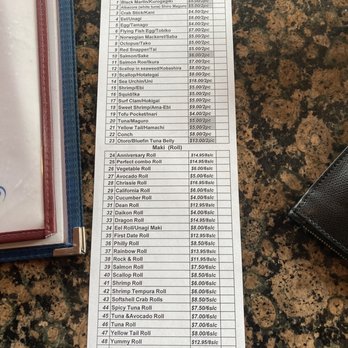 1 Black Marlin/Kurogagiki
2 Albacore (white tuna) Shiro Maguro $5.00/2pc
3 Crab Stick/Kani $4.00/2pc
4 Eel/Unagi $6.00/2pc
5 Egg/Tamago $5.00/2pc
6 Flying Fish Egg/Tobiko $7.00/2pc
7 Norwegian Mackerel/Saba $5.00/2pc
8 Octopus/Tako $5.00/2pc
9 Red Snapper/Tai $5.00/2pc
10 Salmon/Sake $5.00/2pc
11 Salmon Roe/Ikura $7.00/2pc
12 Scallop in seaweed/Kobashira $8.00/2pc
13 Scallop/Hotategai $8.00/2pc
14 Sea Urchin/Uni $18.00/2pc
15 Shrimp/Ebi $5.00/2pc
16 Squid/Ika $5.00/2pc
17 Surf Clam/Hokigai $5.00/2pc
18 Sweet Shrimp/Ama-Ebi $9.00/2pc
19 Tofu Pocket/Inari $4.00/2pc
20 Tuna/Maguro $5.00/2pc
21 Yellow Tail/Hamachi $5.00/2pc
22 Conch $8.00/2pc
23 Otoro/Bluefin Tuna Belly $13.00/2pc
Maki (Roll)
24 Anniversary Roll $14.95/6slc
25 Perfect combo Roll $14.95/6slc
26 Vegetable Roll $6.00/6slc
27 Avocado Roll $5.00/6slc
28 Chrissie Roll $16.95/6slc
29 California Roll $6.00/6slc
30 Cucumber Roll $4.00/6slc
31 Dean Roll $12.95/6slc
32 Daikon Roll $4.00/6slc
33 Dragon Roll $14.95/6slc
34 Eel Roll/Unagi Maki $8.00/6slc
35 First Date Roll $12.95/6slc
36 Philly Roll $8.50/6slc
37 Rainbow Roll $13.95/6slc
38 Rock & Roll $11.95/6slc
39 Salmon Roll $7.50/6slc
40 Scallop Roll $8.50/6slc
41 Shrimp Roll $6.00/6slc
42 Shrimp Tempura Roll $6.00/6slc
43 Softshell Crab Rolls $8.50/6slc
44 Spicy Tuna Roll $7.50/6slc
45 Tuna &Avocado Roll $7.00/6slc
46 Tuna Roll $7.00/6slc
47 Yellow Tail Roll $8.00/6slc
48 Yummy Roll $12.95/6slc